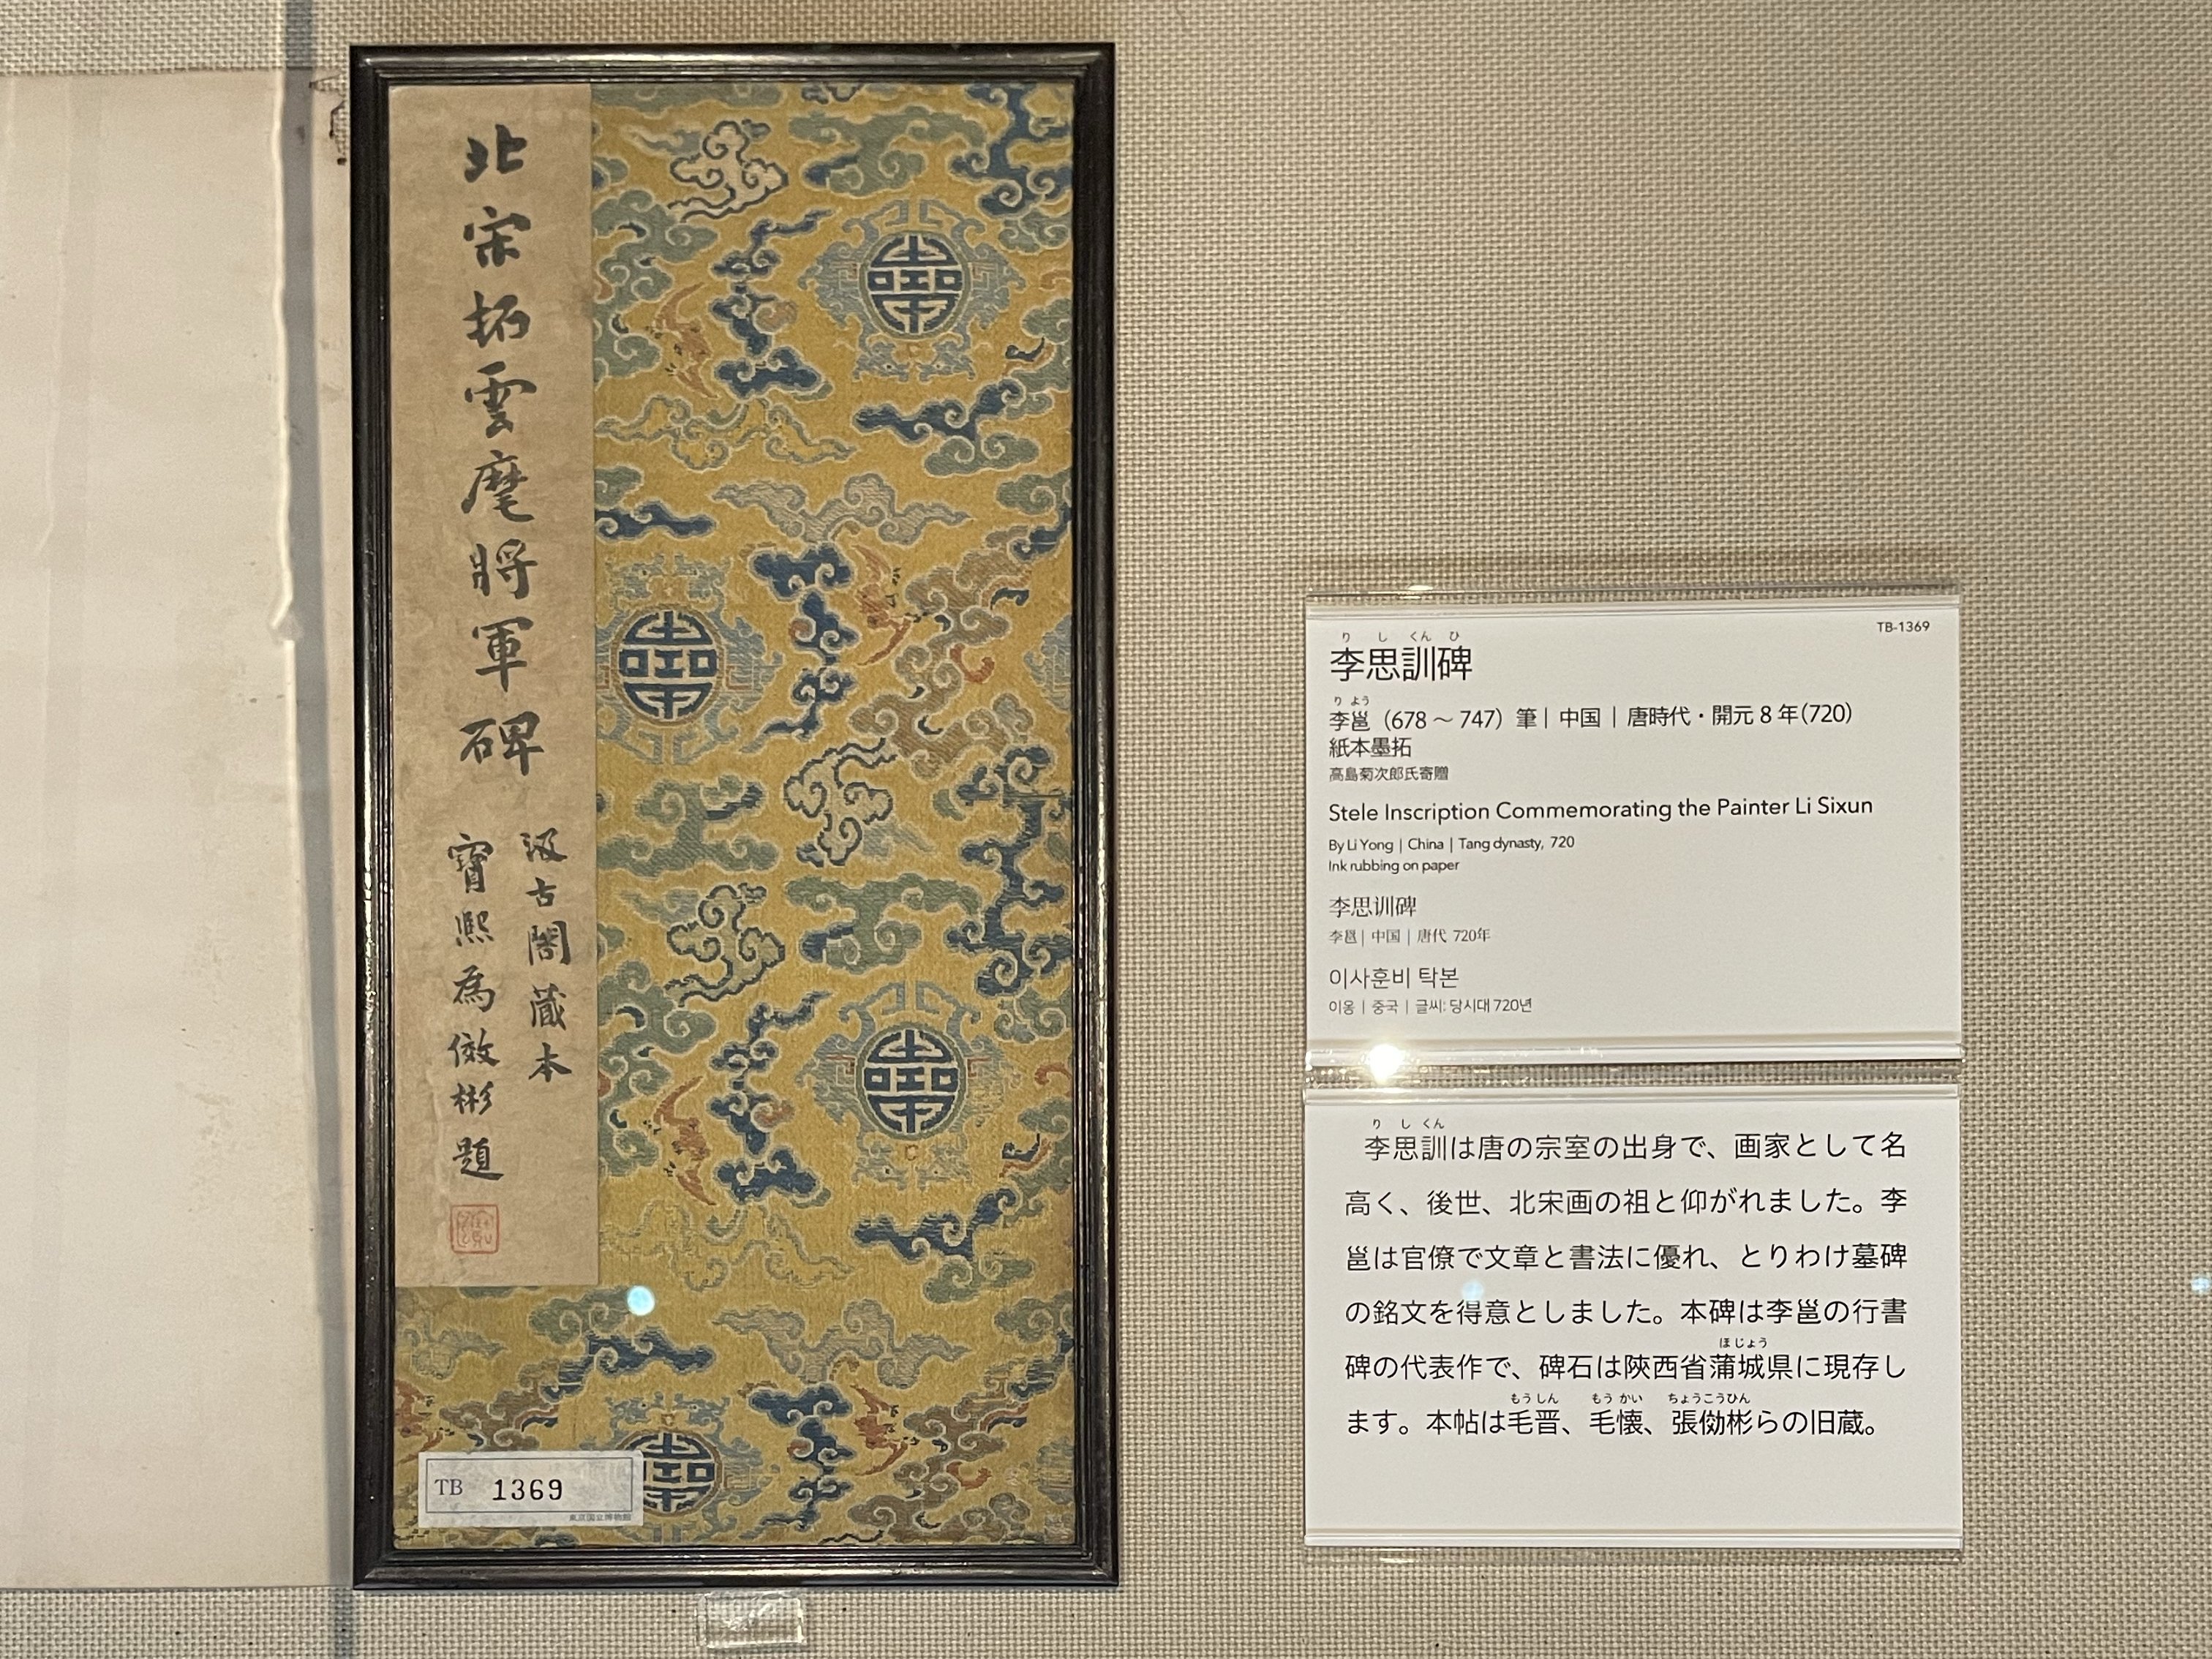 北宋拓雲麾將軍碑
汲古閣藏本
寶熙為傚彬題
TB 1369
東京国立博物館
TB-1369
り し くん ひ
李思訓碑
り よう
李邕（678～747）筆｜中国｜唐時代・開元8年(720)
紙本墨拓
高島菊次郎氏寄贈
Stele Inscription Commemorating the Painter Li Sixun
By Li Yong | China | Tang dynasty, 720
Ink rubbing on paper
李思训碑
李邕｜中国｜唐代 720年
이사훈비 탁본
이옹 | 중국 | 글씨: 당시대 720년
り し くん
李思訓は唐の宗室の出身で、画家として名
高く、後世、北宋画の祖と仰がれました。李
邕は官僚で文章と書法に優れ、とりわけ墓碑
の銘文を得意としました。本碑は李邕の行書
ほじょう
碑の代表作で、碑石は陝西省蒲城県に現存し
もうしん もうかい ちょうこうひん
ます。本帖は毛晋、毛懐、張傚彬らの旧蔵。